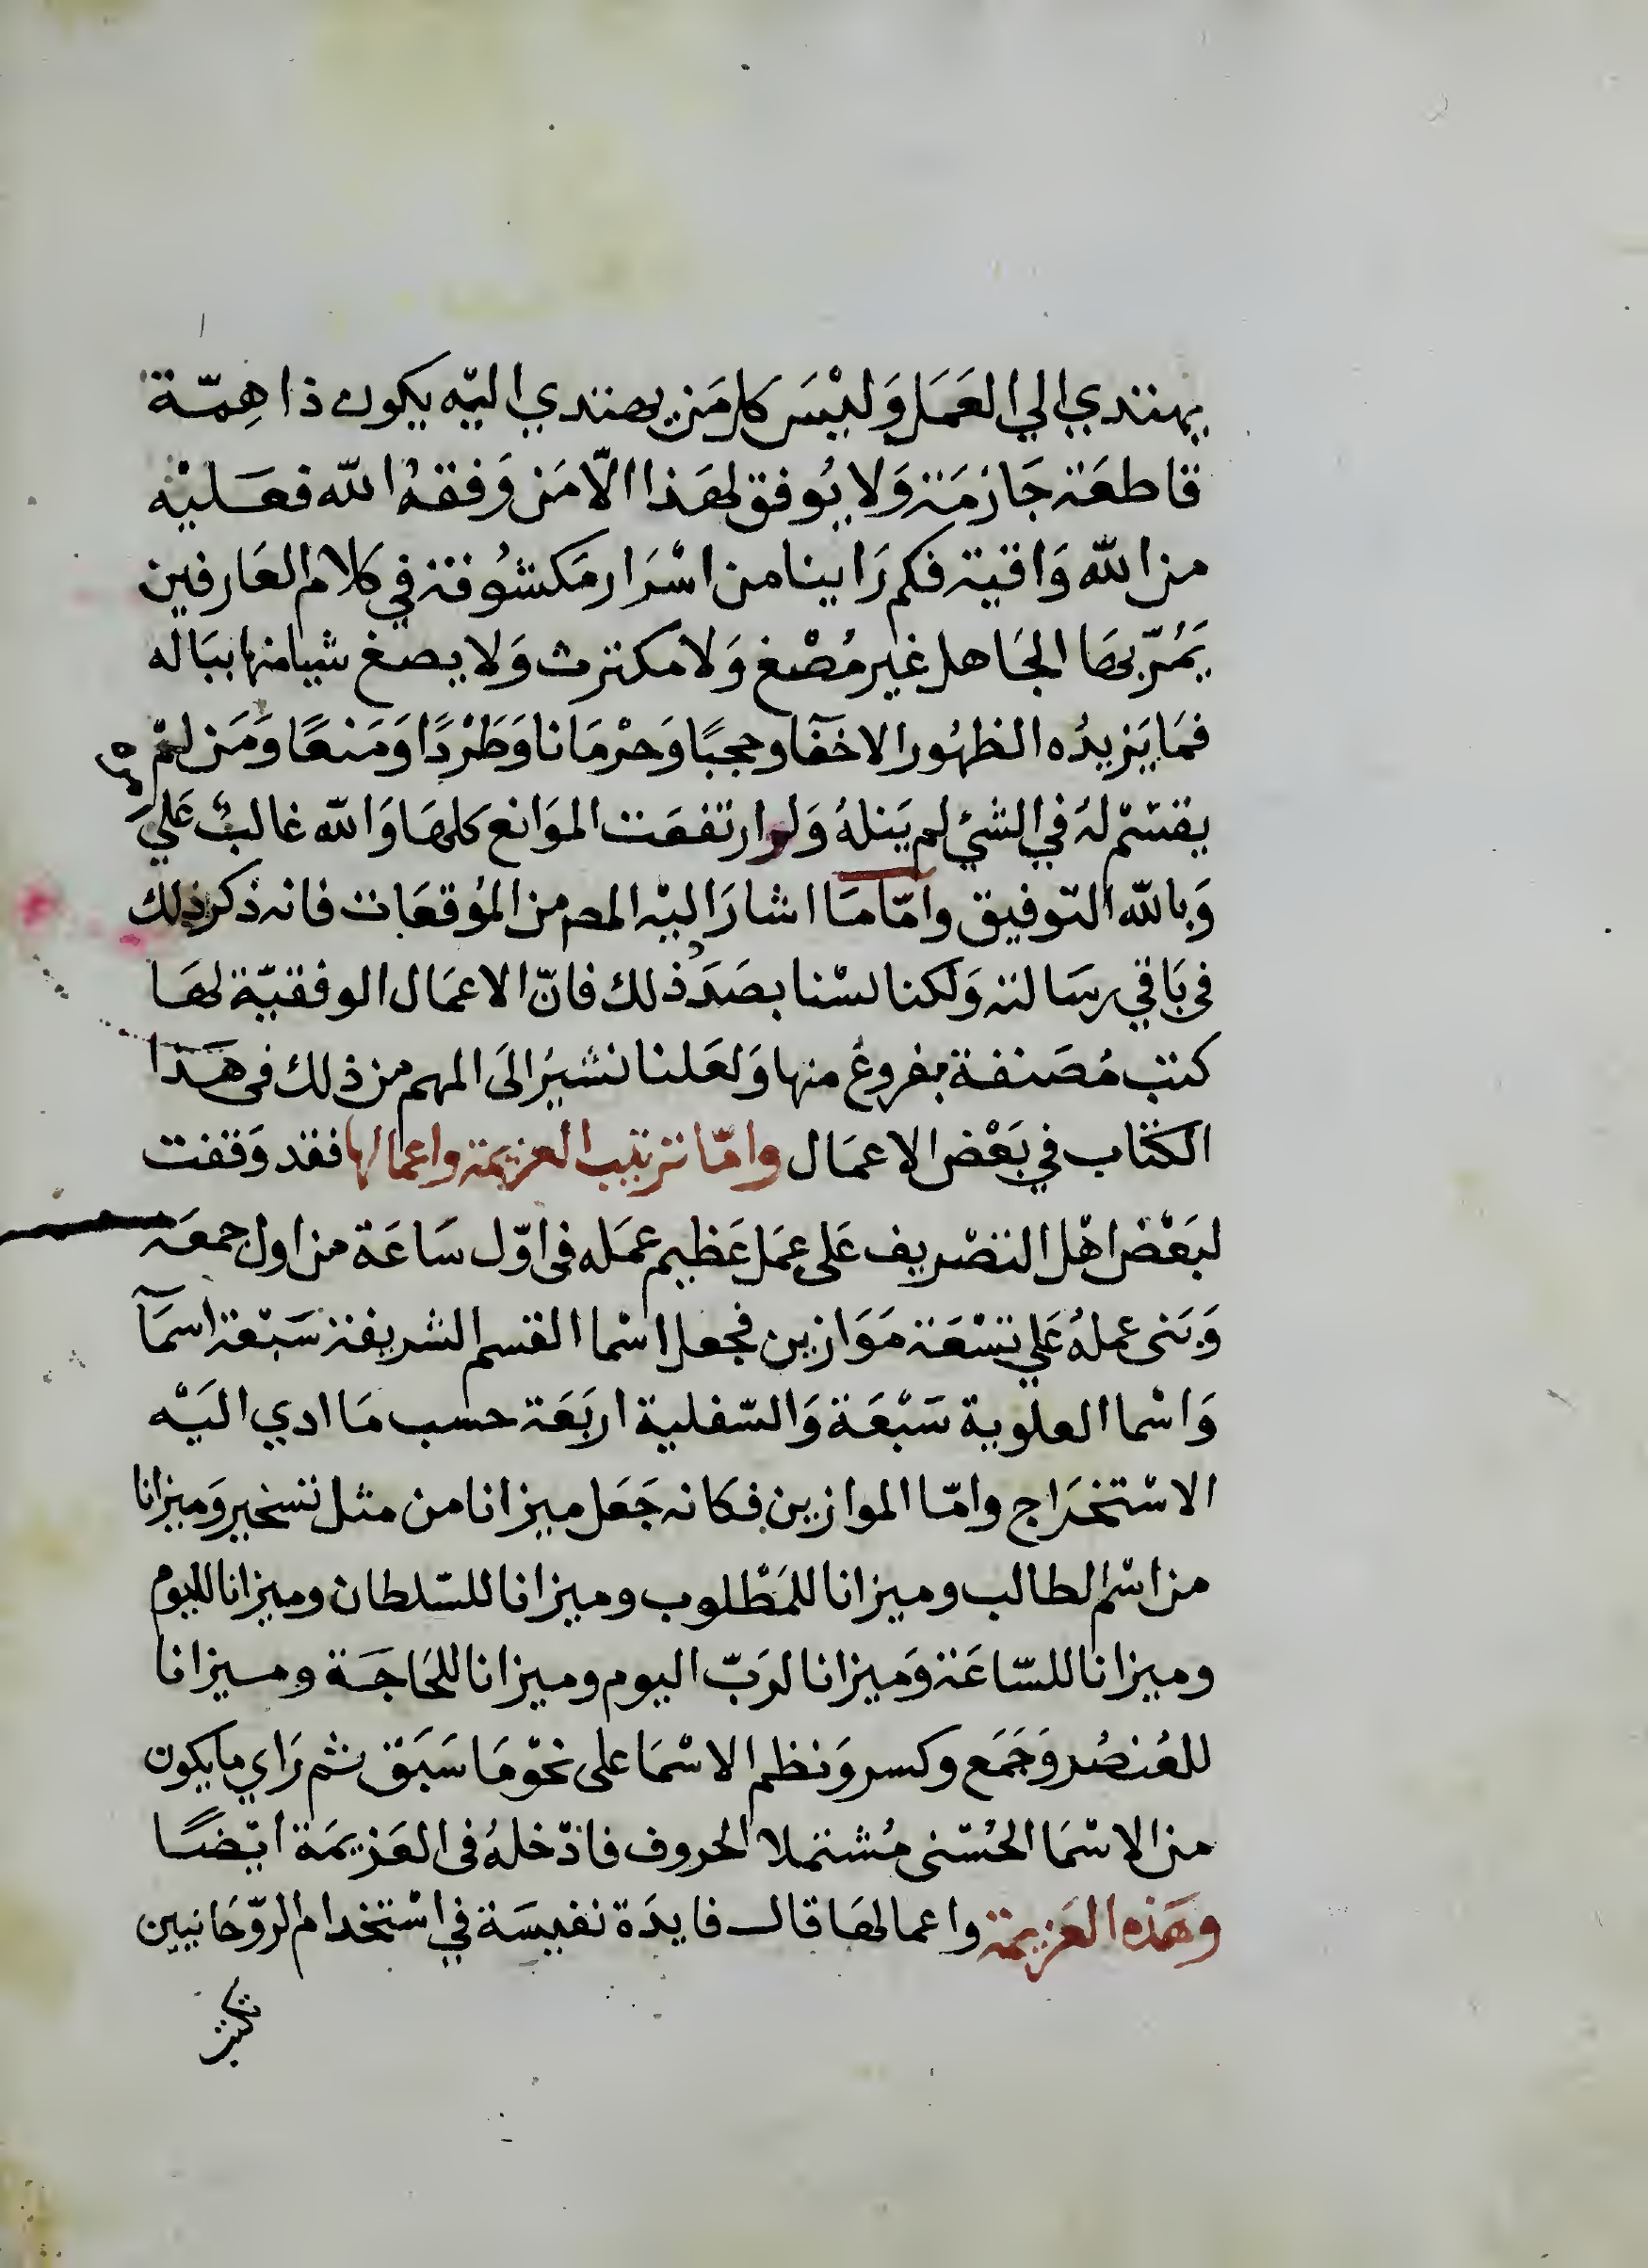 يهتدي الي العَمَل وَليْسَ كل مَن يهتدي اليْه يكون ذا هِمّة
قاطعَة جَازمَة وَلا يُوفق لهَذا الّا مَن وَفقهُ الله فعَليْه
من الله وَاقية فكم رَاينا من اسْرَار مَكشُوفة في كلام العَارفين
يَمُرّ بها الجَاهل غير مُصْغ وَلا مكترث وَلا يصغ شيا منها ببَاله
فمَا يَزيدُه الظهُور الا خَفَآ وحجبًا وَحرْمَانا وَطَرْدًا وَمَنعًا وَمَن لمْ
يقسَمْ لهُ في الشيْ لم يَنلهُ وَلو ارتفعَت الموَانع كلهَا وَالله غالبٌ عَليَ
وَبالله التوفيق وامّا مَا اشارَ اليْه المص من المُوقعَات فانه ذكر ذلك
في بَاقي رسَالته وَلكنا لسْنا بصَدَد ذلك فانّ الاعمَال الوفقيّة لهَا
كتب مُصَنفة مفروغ منها وَلعَلنا نشيرُ الَى المهم من ذلك في هَذا
الكتاب في بَعْض الاعمَال وامّا ترتيب العزيمة واعمالها فقد وَقفت
لبَعْض اهْل التصْريف عَلى عمَل عَظيم عمَله في اوّل سَاعَة من اول جمعَة
وَبَنى عملهُ عَلي تسْعَة مَوَازين فجعل اسْما القسم الشريفة سَبْعَة اسمَآ
وَاسْما العلوية سَبْعَة وَالسّفلية اربَعَة حسب مَا ادي اليَْه
الاسْتخرَاج وامّا الموازين فكانه جَعَل ميزانا من مثل تسخير وَميزانا
من اسْم الطالب وميزانا للمَطْلوب وميزانا للسّلطان وميزانا لليوم
وميزانا للسّاعَة وَميزانا لرَبّ اليوم وميزانا للحَاجَة وميزانا
للعُنصُر وَجَمَع وكسر وَنظم الاسْمَا على نحْو مَا سَبَق ثم رَاي ما يكون
من الاسْمَا الحُسْنى مُشتملا الحروف فادْخلهُ في العَزيمَة ايْضًا
وهَذه العَزيمَة واعمالهَا قال فايدَة نفيسَة في اسْتخدام الروّحَانيين